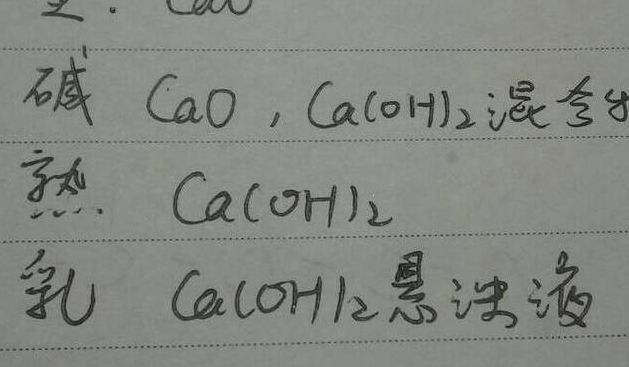 : CaO
碱 CaO , Ca(OH)₂混合
熟 Ca(OH)₂
乳 Ca(OH)₂悬浊液